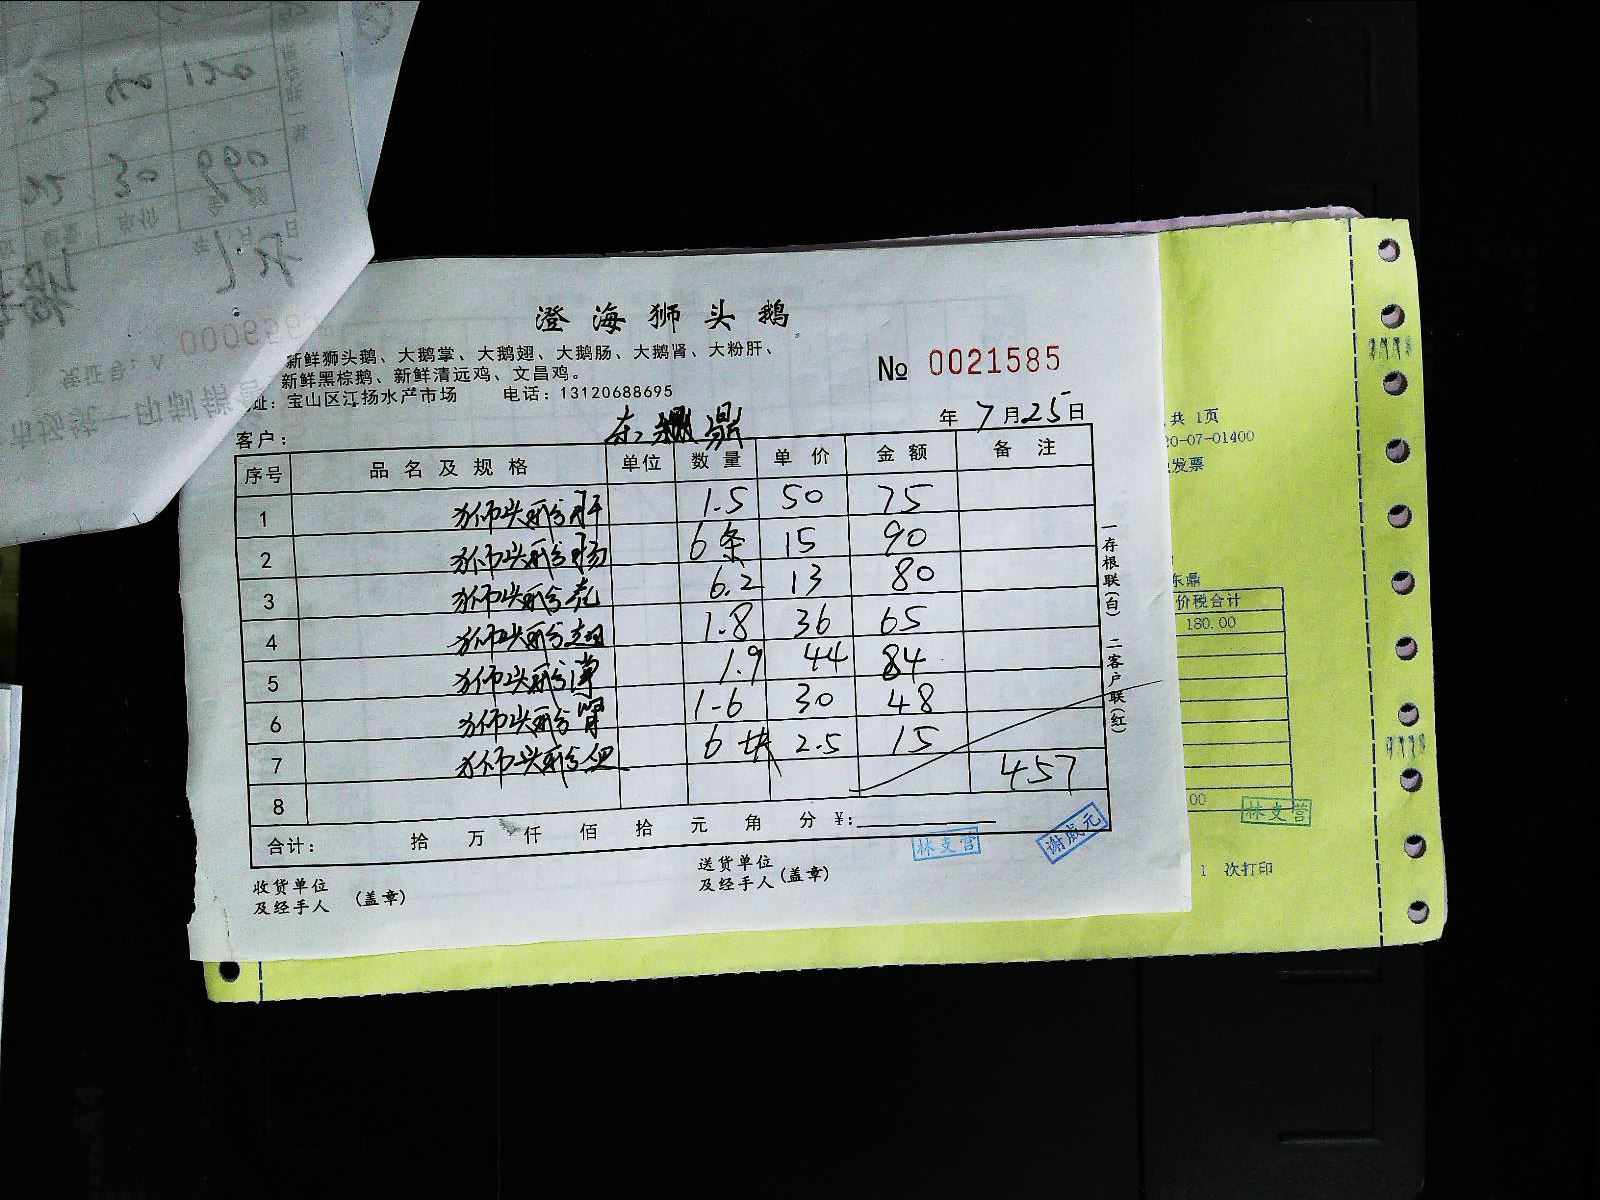 澄海狮头鹅
新鲜狮头鹅、大鹅掌、大鹅翅、大鹅肠、大鹅肾、大粉肝、
新鲜黑棕鹅、新鲜清远鸡、文昌鸡。
址：宝山区江扬水产市场 电话：13120688695
№ 0021585
客户： 东 鼎
年 7月25日
序号 品名及规格 单位 数量 单价 金额 备注
1 狮头鹅肝 1.5 50 75
2 狮头鹅肠 6条 15 90
3 狮头鹅 6.2 13 80
4 狮头鹅翅 1.8 36 65
5 狮头鹅掌 1.9 44 84
6 狮头鹅肾 1-6 30 48
7 狮头鹅 6块 2.5 15
457
8
合计： 拾 万 仟 佰 拾 元 角 分 ¥:
林文营
谢成元
收货单位
及经手人 （盖章）
送货单位
及经手人（盖章）
一存根联（白） 二客户联（红）
共 1页
20-07-01400
发票
东鼎
价税合计
180.00
00
林文营
1 次打印
3 40 120
30 990
单价 金额
年 7.25 月 日
市场统一印制